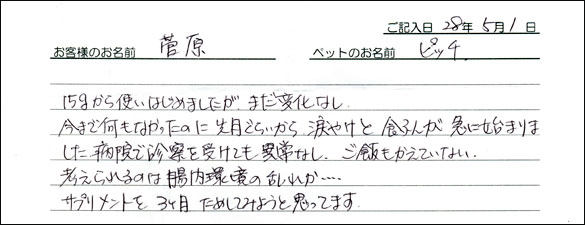 ご記入日 28年 5月 1日
お客様のお名前 菅原 ペットのお名前 ピッチ
15gから使いはじめましたが、まだ変化なし。
今まで何もなかったのに先月ぐらいから涙やけと食ふんが急に始まりま
した病院で診察を受けても異常なし。ご飯もかえていない。
考えられるのは腸内環境の乱れか……
サプリメントを3ヶ月ためしてみようと思ってます。